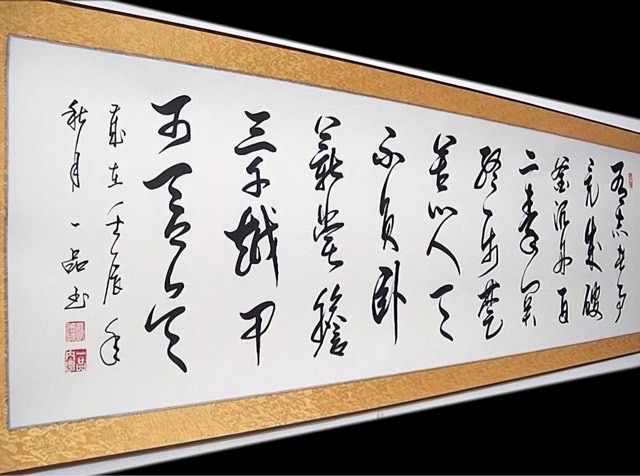 有志者事
竟成破
釜沉舟百
二秦關
終歸楚
苦心人天
不負卧
薪嘗膽
三千越甲
可吞吴
歲在壬辰年
秋月一品书